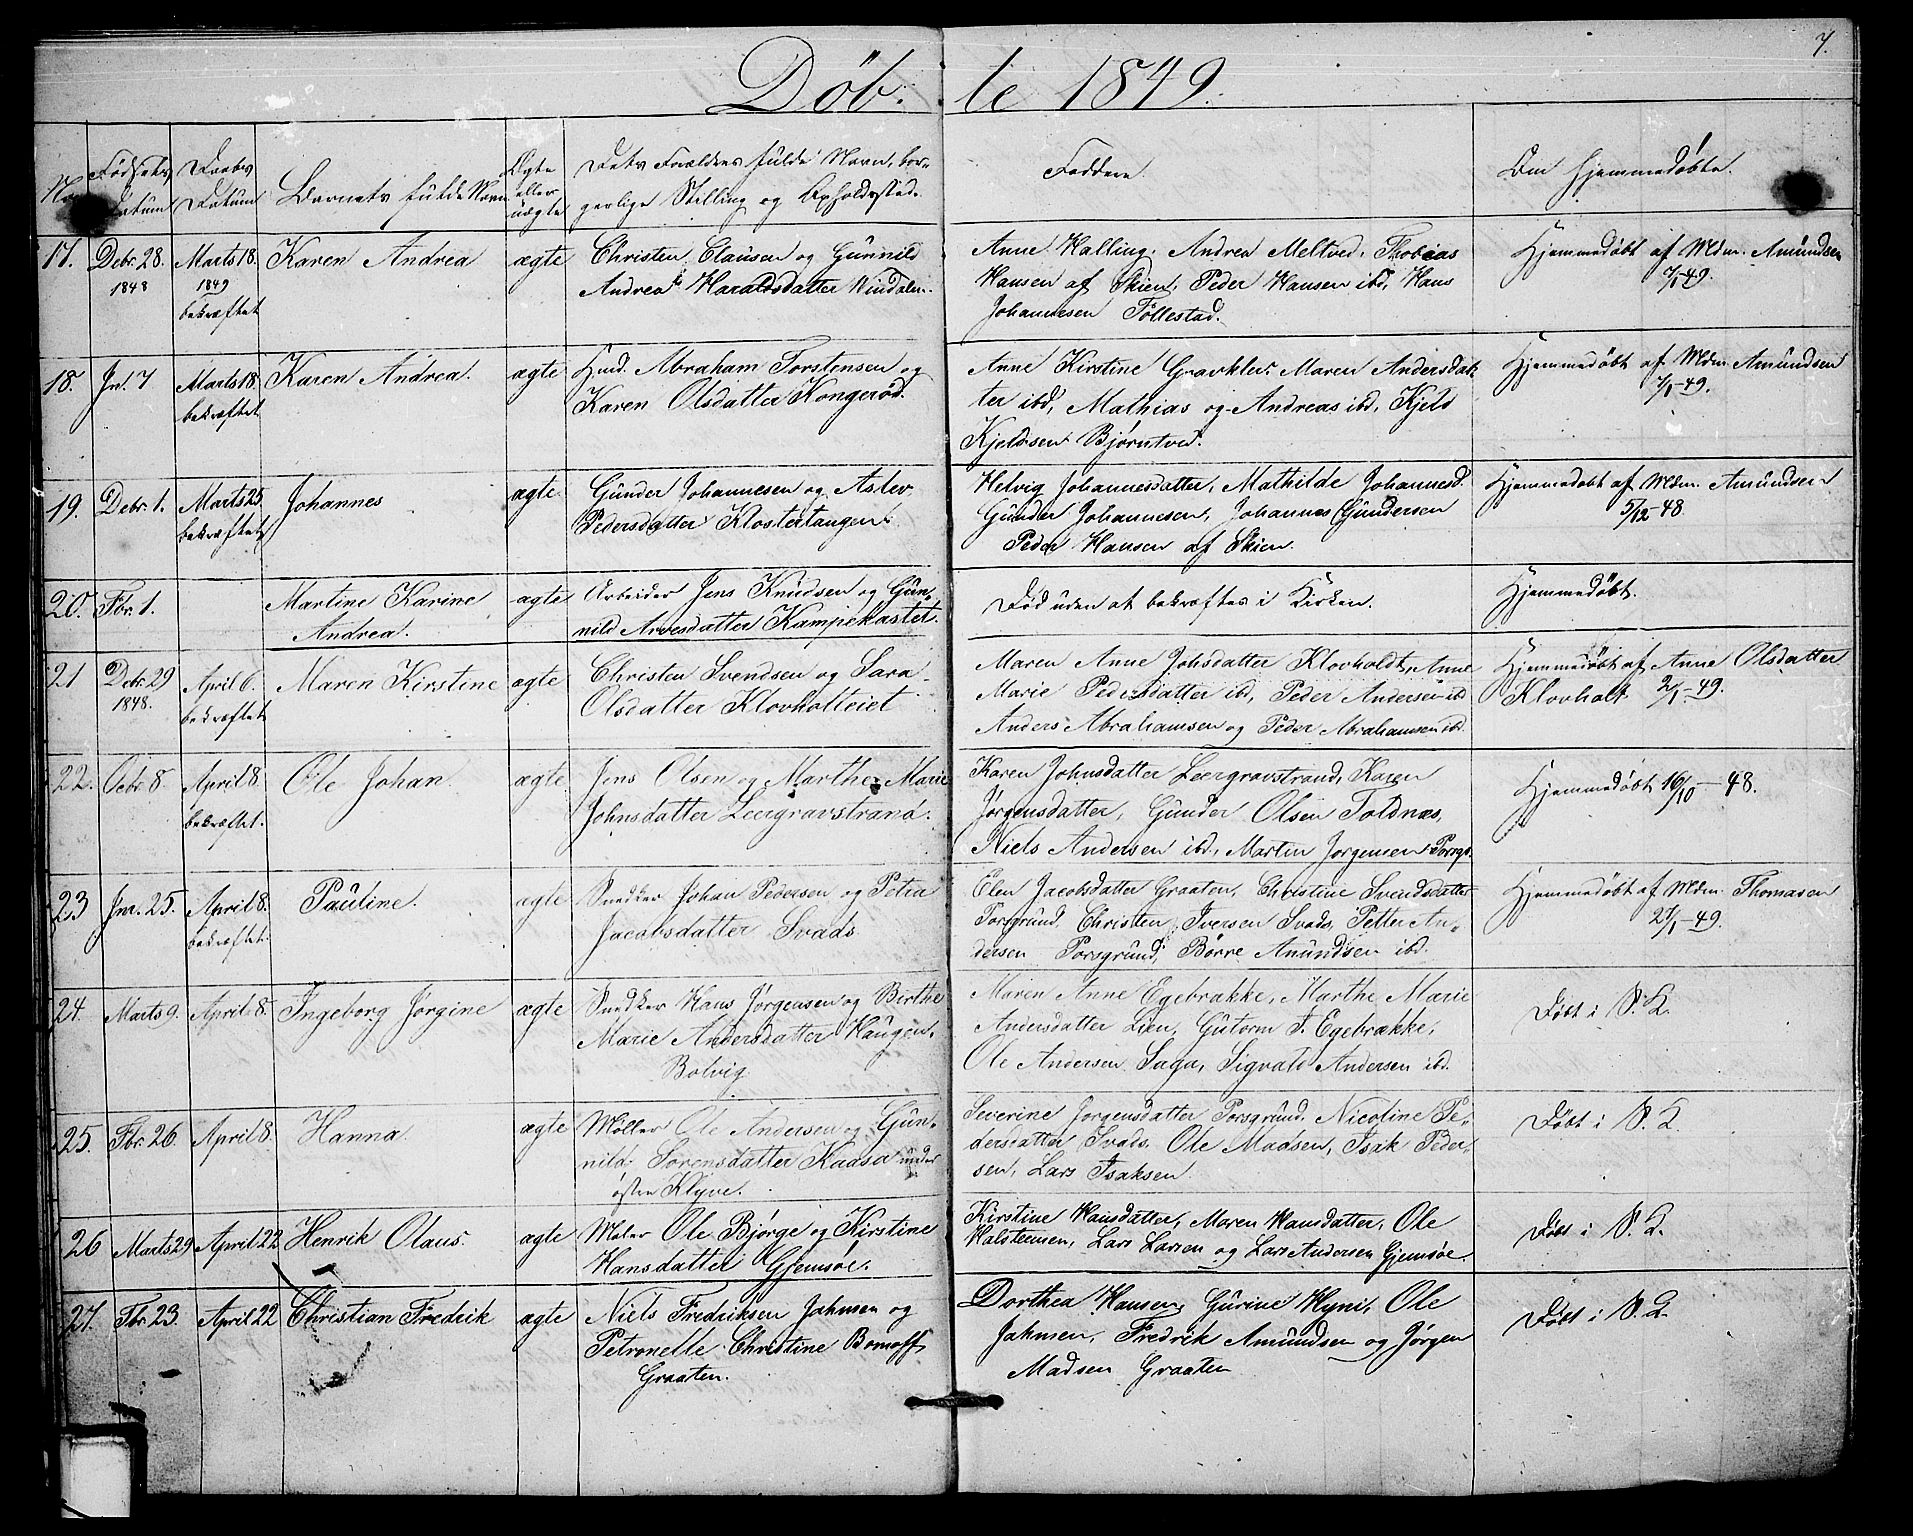 7.
Döb. te 1849.
No
Fødsels Datum
Daabs Datum
Barnets fulde Navn
Ægte eller uægte
Dets Forældres fulde Navn, borgerlige Stilling og Opholdssted.
Faddere.
Om hjemmedøbte.
17. Debr. 28. Marts 18. Karen Andrea ægte Christen Clausen og Gunnild
1848 1849 Andrea Haraldsdatter Windalen.
bekræftet
Anne Halling, Andrea Meltved, Thobias
Hansen af Skien, Peder Hansen ibd, Hans
Johannesen Föllestad.
Hjemmedøbt af Mdm. Amundsen
7/1-49.
18. Jnr. 7 Marts 18. Karen Andrea. ægte Husd. Abraham Torstensen og
bekræftet Karen Olsdatter Kongerød.
Anne Kirstine Gravklev, Maren Andersdat-
ter ibd, Mathias og Andreas ibd, Kjeld
Kjeldsen Bjørntved.
Hjemmedøbt af Mdm. Amundsen
7/1-49.
19. Debr. 1. Marts 25. Johannes ægte Gunder Johannesen og Aslev
bekræftet Pedersdatter Klostertangen.
Helvig Johannesdatter, Mathilde Johannesd.
Gunder Johannesen, Johannes Gundersen
Peder Hansen af Skien.
Hjemmedøbt af Mdm. Amundsen
5/12-48
20. Fbr. 1. Martine Karine ægte Arbeider Jens Knudsen og Gun-
Andrea. nild Arvesdatter Kampekastet.
Død uden at bekræftes i Kirken.
Hjemmedøbt.
21 Debr. 29 April 6. Maren Kirstine ægte Christen Svendsen og Sara
1848. bekræftet Olsdatter Klovholtveiet
Maren Anne Johsdatter Klovholdt, Anne
Marie Pedersdatter ibd, Peder Andersen ibd
Anders Abrahamsen og Peder Abrahamsen ibd.
Hjemmedøbt af Anne Olsdatter
Klovholt 2/1-49.
22. Octbr. 8. April 8. Ole Johan. ægte. Jens Olsen og Marthe Marie
bekræftet. Johnsdatter Leergravstrand.
Karen Johnsdatter Leergravstrand, Karen
Jørgensdatter, Gunder Olsen Toldnæs,
Niels Andersen ibd, Martin Jørgensen Porsgr.
Hjemmedøbt 16/10-48.
23 Jnr. 25. April 8. Pauline. ægte Snedker Johan Pedersen og Petra
bekræftet. Jacobsdatter Svads.
Elen Jacobsdatter Graaten, Christine Svendsdatter
Porsgrund, Christen Iversen Svads, Petter An-
dersen Porsgrund, Börre Amundsen ibd.
Hjemmedøbt af Mdm. Thomasen
27/1-49.
24. Marts 9. April 8. Ingeborg Jørgine ægte Snedker Hans Jørgensen og Birthe
Marie Andersdatter Haugen
Bolvig
Maren Anne Egebrække, Marthe Marie
Andersdatter Lien, Gutorm T. Egebrække,
Ole Andersen Saga, Sigvald Andersen ibd.
Døbt i K.
25. Fbr. 26. April 8. Hanna. ægte Møller Ole Andersen og Gun-
nild Sørensdatter Kaasa under
østre Klyve.
Severine Jørgensdatter Porsgrund, Nicoline Pe-
dersdatter Svads. Ole Madsen, Isak Peder-
sen, Lars Isaksen.
Døbt i K.
26 Marts 29 April 22 Henrik Olaus ægte Maler Ole Bjørge og Kirstine
Hansdatter Gjemsøe.
Kirstine Hansdatter, Maren Hansdatter, Ole
Halstensen, Lars Larsen og Lars Andersen Gjemsøe.
Døbt i K.
27. Fbr. 23. April 22 Christian Fredrik ægte Niels Fredriksen Jahnsen og
Petronelle Christine Bomhoff
Graaten.
Dorthea Hansen, Gurine Hyni, Ole
Jahnsen, Fredrik Amundsen og Jørgen
Madsen Graaten
Døbt i K.